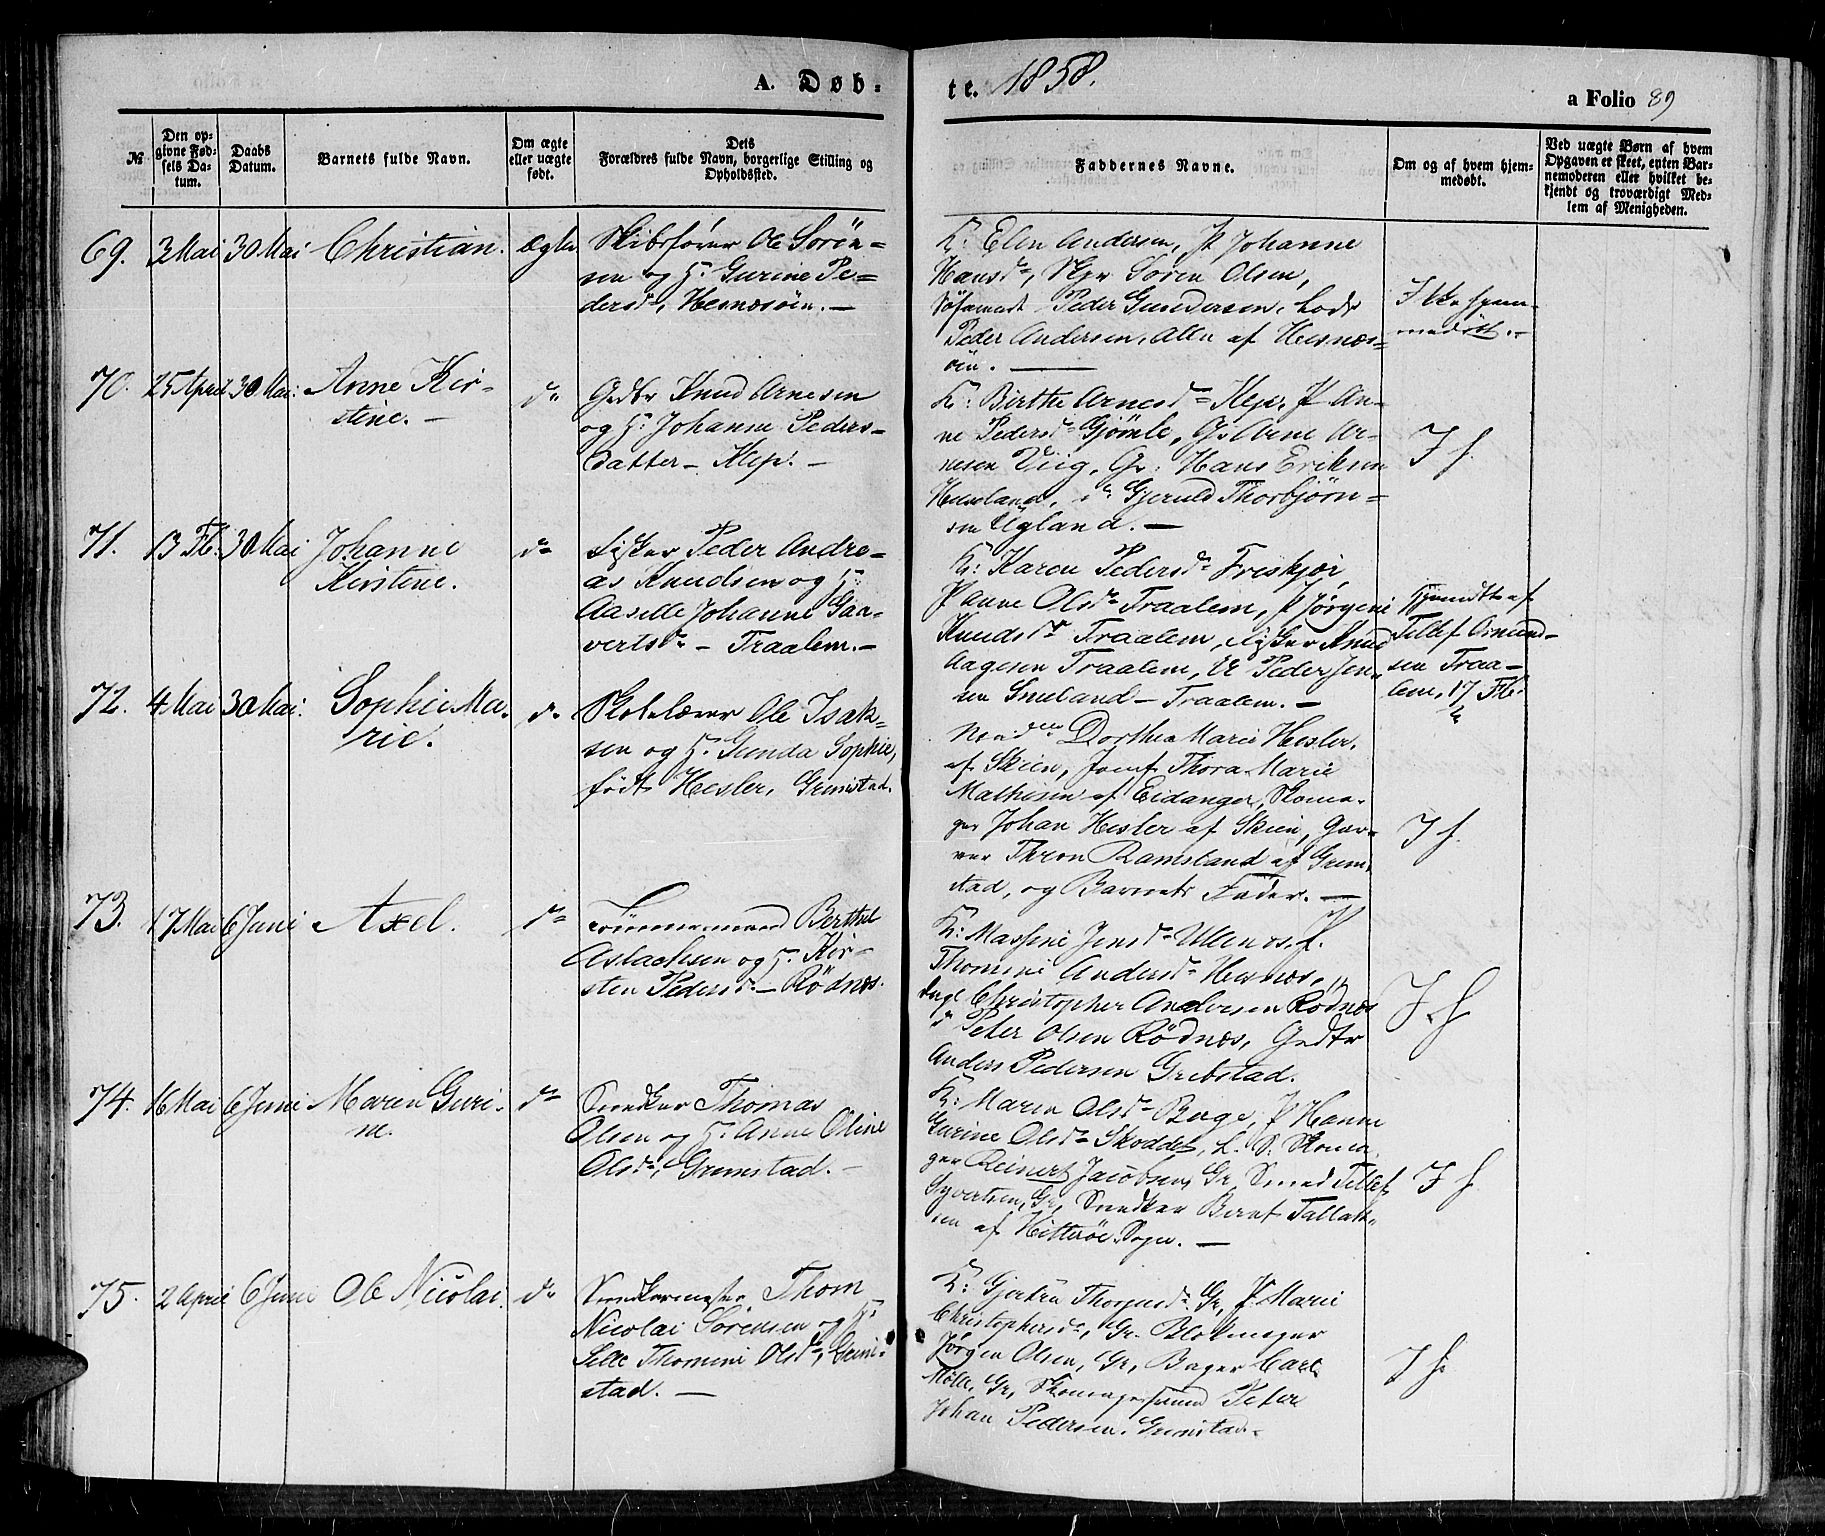 A. Døb-
te. 1858.
a Folio 89
№
Den op-
givne Fød-
sels Da-
tum.
Daabs
Datum.
Barnets fulde Navn.
Om ægte
eller uægte
født.
Dets
Forældres fulde Navn, borgerlige Stilling og
Opholdssted.
Faddernes Navne.
Om og af hvem hjem-
medøbt.
Ved uægte Børn af hvem
Opgaven er skeet, enten Bar-
nemoderen eller hvilket be-
kjendt og troværdigt Med-
lem af Menigheden.
69. 3 Mai 30 Mai Christian. ægte
Skibsfører Ole Sørn-
sen og H. Gurine Pe-
dersd., Hesnæsøen. —
K: Elen Andersen, P Johanne
Hansd., Skpr Søren Olsen,
Søfamand Peder Gundersen, Lods
Peder Andersen, Alle af Hesnæs-
øen. —
Ikke hjem-
medøbt. -
70. 25 April 30 Mai. Anne Kir-
stine. - do
Gedtr Knud Arnesen
og H: Johanne Peders-
datter - Klep. -
K: Birthe Arnesd. Klep, P An-
ne Pedersd. Gjömle, G. Arne Ar-
nesen Viig, G: Hans Eriksen
do Gjeruld Thorbjørn-
sen Ugland. —
I h.
71. 13 Fb. 30 Mai Johanne
Kirstine. do
Peder Andre-
as Knudsen og H:
Aasille Johanne Gaa-
vertsd. - Traalem. -
K: Karen Pedersd. Freskjær
P Anne Olsd. Traalem, P Jørgine
Knudsd. Traalem, Knud
Aagesen Traalem, Peder Jen-
sen - Traalem. -
Hjemdbt af
Tellef Osmund-
sen Traa-
lem, 17 Fb.
72. 4 Mai 30 Mai. Sophie Ma-
rie. do
Skolelærer Ole Isak-
sen og H. Gunda Sophie,
født Hesler, Grimstad.
Dorthea Marie Hesler,
af Skien, Jomf. Thora Marie
Mathisen af Eidanger, Skoma-
ger Johan Hesler af Skien, Gar-
ver Thron Ramsland af Grim-
stad, og Barnets Fader. —
I h.
73. 17 Mai 6 Juni Axel. do
Tømmermand Berthel
Aslachsen og H. Kir-
sten Pedersd. - Rödnes.
K: Massine Jensd. P.
Thomine Andersd. Hesnæs,
Christopher Andersen Rødnes
do Peter Olsen Rødnes, Gedtr
Anders Pedersen Grebstad.
I. h
74. 16 Mai 6 Juni Maren Guri-
ne. do
Snedker Thomas
Olsen og H: Anne Oline
Olsd., Grimstad. -
K: Maren Olsd. Berge, P Hanne
Gurine Olsd. Skoddet, L. S. Skoma-
ger Reinert Jacobsen, Gr, Smed Tellef
Syvertsen, Gr, Snedker Bernt Tallak-
sen af Hitterøe Sogn. —
I h
75. 2 April 6 Juni Ole Nicolai. do
Snedkermester Thom
Nicolai Sørensen og H:
Sille Thomine Olsd., Grim-
stad. —
K: Gjertru Gr, P. Marie
Christophersd., Gr. Blokmager
Jørgen Olsen, Gr, Bager Carl
Møller, Gr, Skomagersvend Peter
Johan Pedersen. Grimstad.
I h